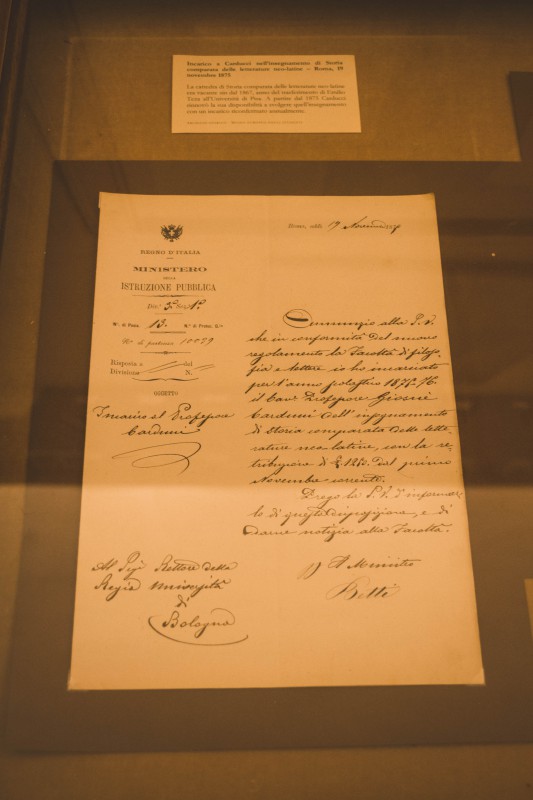 Incarico a Carducci nell'insegnamento di Storia
comparata delle letterature neo-latine – Roma, 19
novembre 1875
La cattedra di Storia comparata delle letterature neo-latine
era vacante sin dal 1867, anno del trasferimento di Emilio
Teza all'Università di Pisa. A partire dal 1875 Carducci
rinnovò la sua disponibilità a svolgere quell'insegnamento
con un incarico riconfermato annualmente.
Roma, addì 19 Novembre
REGNO D'ITALIA
MINISTERO
DELLA
ISTRUZIONE PUBBLICA
Div.
N.° di Posiz. 13. N.° di Protoc. G.le
N.° di partenza 10059
Risposta a del
Divisione N.
OGGETTO
Incarico al Professore
Carducci
Annunzio alla S.V.
che in conformità del nuovo
regolamento la Facoltà di filoso-
fia e lettere io ho incaricato
per l'anno scolastico 1875-76
il Cav. Professore Giosuè
Carducci dell'insegnamento
di storia comparata delle lette-
rature neo-latine, con la re-
tribuzione di dal primo
Novembre corrente.
Prego la S.V. d'informar-
lo di questa disposizione, e di
darne notizia alla Facoltà.
Al Sig. Rettore della
Regia Università
di
Bologna
Il Ministro
Betti